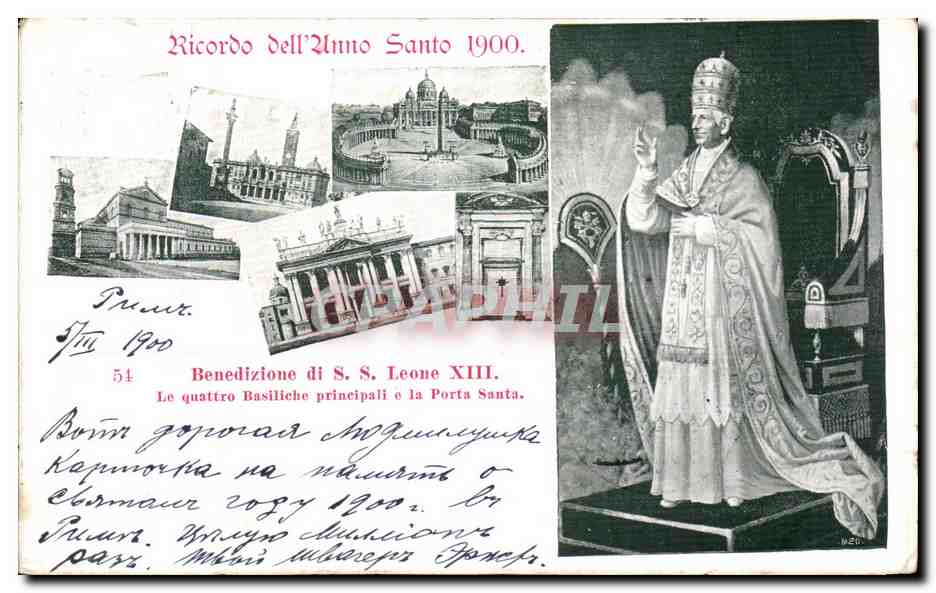 Ricordo dell'Anno Santo 1900.
CPAPHIL
Римъ.
5/III 1900
54 Benedizione di S. S. Leone XIII.
Le quattro Basiliche principali e la Porta Santa.
Вотъ дорогая Людмилушка
карточка на память о
святомъ году 1900 г. въ
Римѣ. Цѣлую Милліонъ
разъ. твой швагеръ